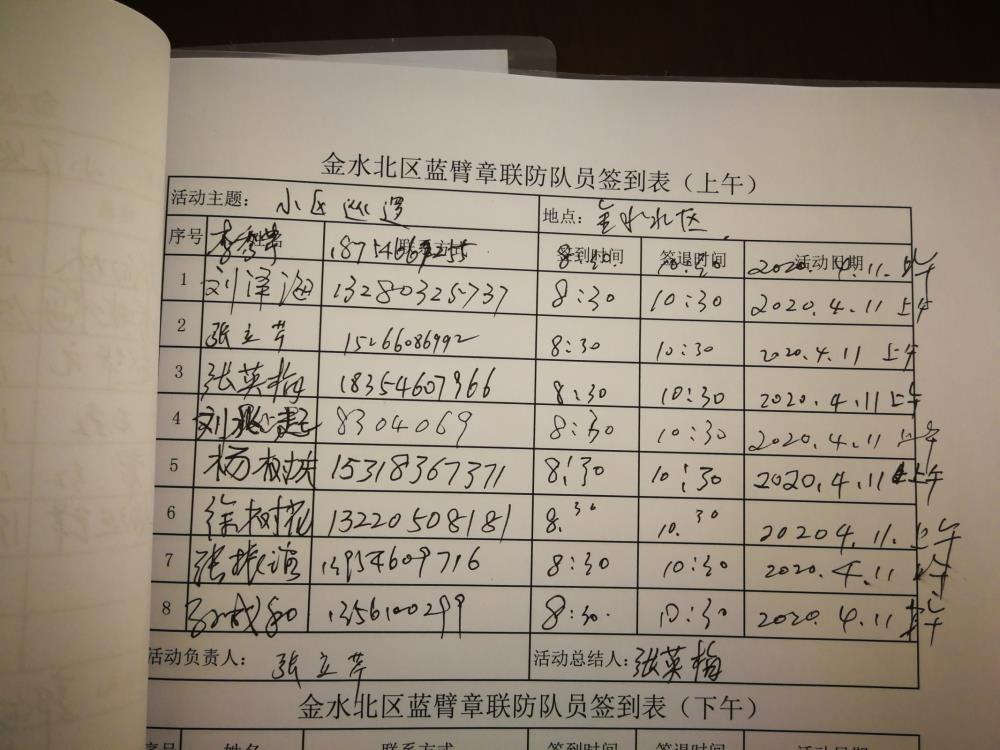 金水北区蓝臂章联防队员签到表（上午）
活动主题： 小区巡逻 地点： 金水北区
序号 姓名 联系方式 签到时间 签退时间 活动日期
李秀苹 8:30 10:30 2020.4.11.上午
1 刘泽海 13280325737 8:30 10:30 2020.4.11 上午
2 张立芹 15266086992 8:30 10:30 2020.4.11 上午
3 张英梅 18354607966 8:30 10:30 2020.4.11 上午
4 刘 8304069 8:30 10:30 2020.4.11 上午
5 杨树庆 15318367371 8:30 10:30 2020.4.11 上午
6 徐树花 13220508181 8.30 10.30 20204.11.上午
7 张振滨 13954609716 8:30 10:30 2020.4.11 上午
8 1356100299 8:30. 10:30 2020.4.11 上午
活动负责人： 张立芹 活动总结人： 张英梅
金水北区蓝臂章联防队员签到表（下午）
序号 姓名 联系方式 签到时间 签退时间 活动日期